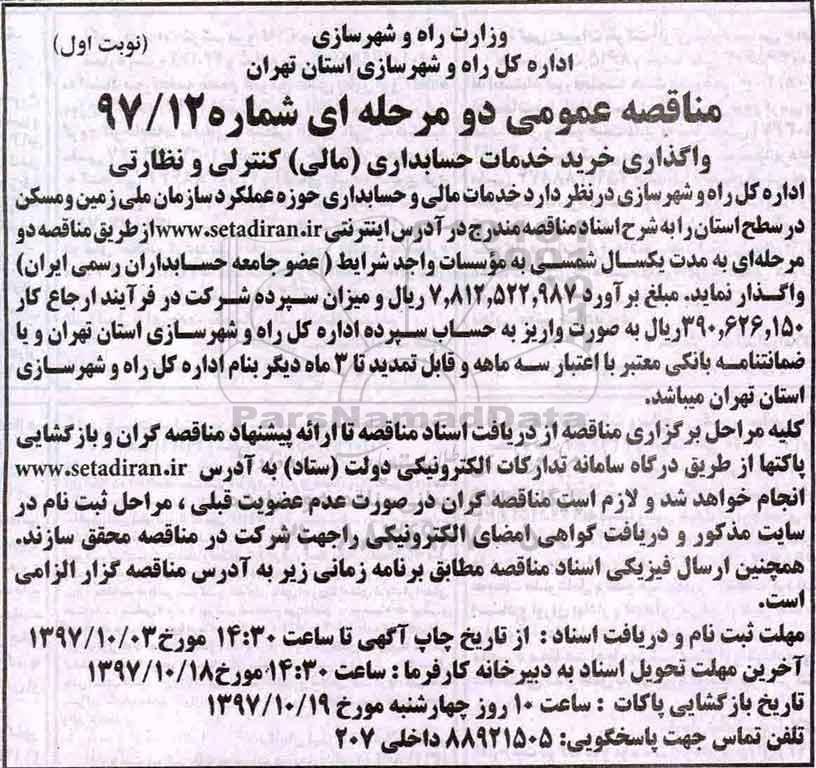 وزارت راه و شهرسازی
(نوبت اول)
اداره کل راه و شهرسازی استان تهران
مناقصه عمومی دو مرحله ای شماره ۹۷/۱۲
واگذاری خرید خدمات حسابداری (مالی) کنترلی و نظارتی
اداره کل راه و شهرسازی در نظر دارد خدمات مالی و حسابداری حوزه عملکرد سازمان ملی زمین و مسکن
در سطح استان را به شرح اسناد مناقصه مندرج در آدرس اینترنتی www.setadiran.ir از طریق مناقصه دو
مرحله‌ای به مدت یکسال شمسی به مؤسسات واجد شرایط ( عضو جامعه حسابداران رسمی ایران)
واگذار نماید. مبلغ برآورد ۷,۸۱۲,۵۲۲,۹۸۷ ریال و میزان سپرده شرکت در فرآیند ارجاع کار
۳۹۰,۶۲۶,۱۵۰ریال به صورت واریز به حساب سپرده اداره کل راه و شهرسازی استان تهران و یا
ضمانتنامه بانکی معتبر با اعتبار سه ماهه و قابل تمدید تا ۳ ماه دیگر بنام اداره کل راه و شهرسازی
استان تهران میباشد.
ParsNamadData
کلیه مراحل برگزاری مناقصه از دریافت اسناد مناقصه تا ارائه پیشنهاد مناقصه گران و بازگشایی
پاکتها از طریق درگاه سامانه تدارکات الکترونیکی دولت (ستاد) به آدرس www.setadiran.ir
انجام خواهد شد و لازم است مناقصه گران در صورت عدم عضویت قبلی ، مراحل ثبت نام در
سایت مذکور و دریافت گواهی امضای الکترونیکی راجهت شرکت در مناقصه محقق سازند.
همچنین ارسال فیزیکی اسناد مناقصه مطابق برنامه زمانی زیر به آدرس مناقصه گزار الزامی
است.
مهلت ثبت نام و دریافت اسناد : از تاریخ چاپ آگهی تا ساعت ۱۴:۳۰ مورخ ۱۳۹۷/۱۰/۰۳
آخرین مهلت تحویل اسناد به دبیرخانه کارفرما : ساعت ۱۴:۳۰ مورخ ۱۳۹۷/۱۰/۱۸
تاریخ بازگشایی پاکات : ساعت ۱۰ روز چهارشنبه مورخ ۱۳۹۷/۱۰/۱۹
تلفن تماس جهت پاسخگویی: ۸۸۹۲۱۵۰۵ داخلی ۲۰۷